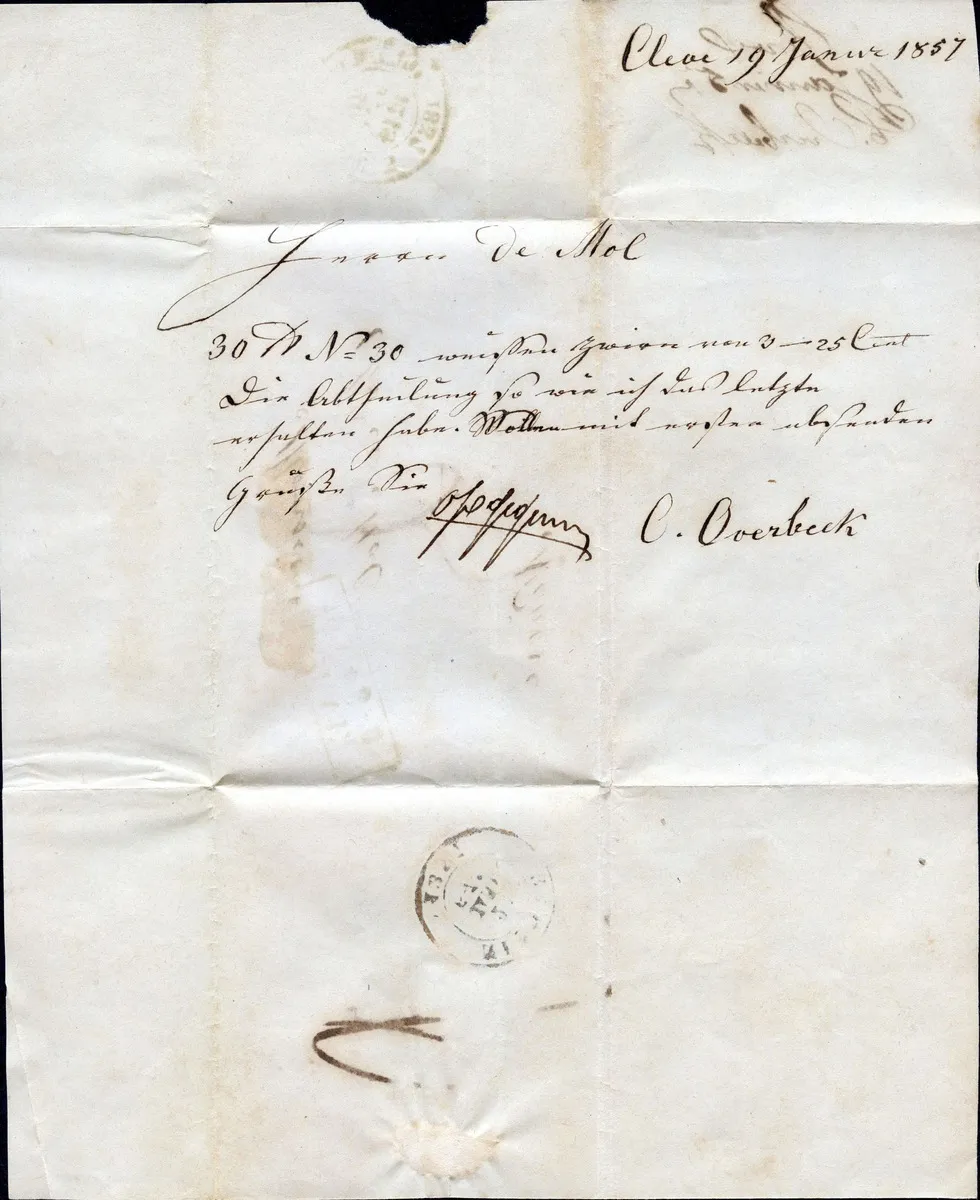 Cleve 19 Januar 1857
Herrn de Mol
30 ℔ No 30 weißen Zwirn von 3 – 25 Cent
Die Abtheilung so wie ich das letzte
erhalten habe. Wollen mit ersten absenden
Grüße Sie
C. Overbeck